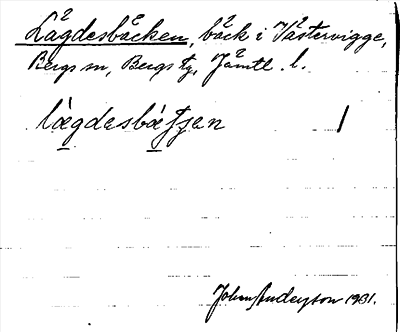 Lägdesbäcken, bäck i Västervigge,
Bergs sn, Bergs tg, Jämtl. l.
lægdesbætsen 1
John Anderzson 1931.